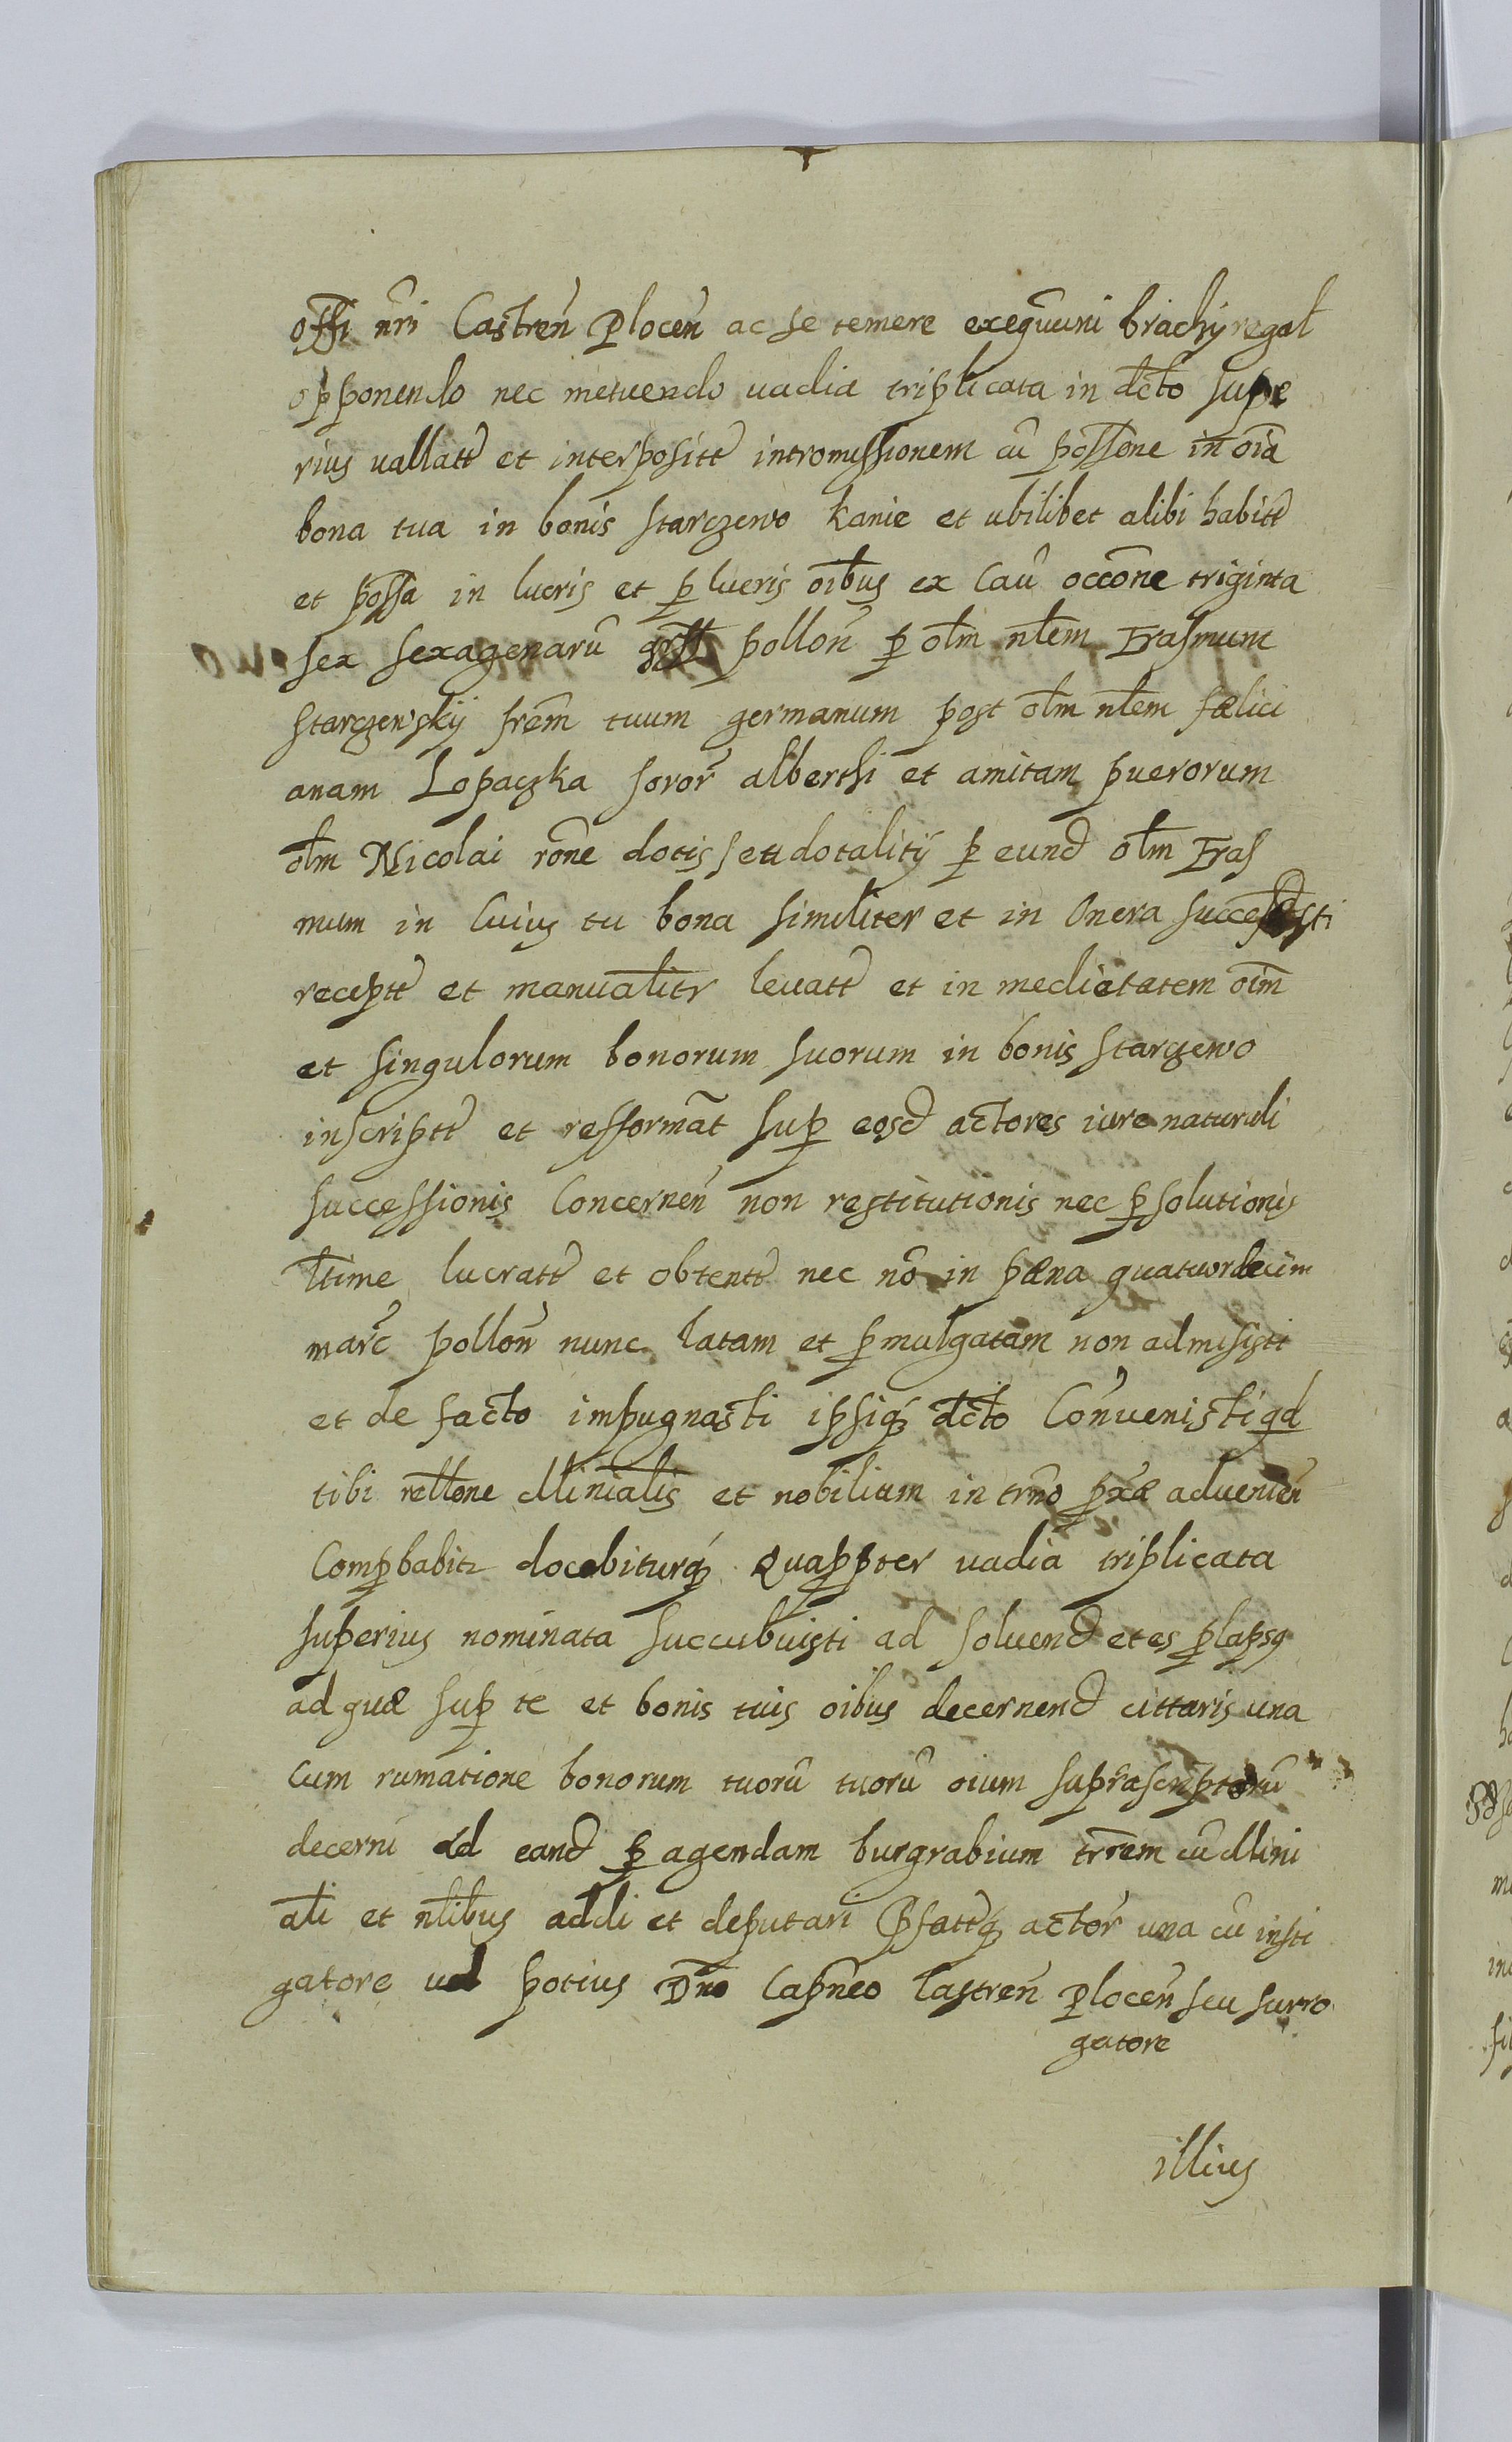 offi nri Castren Plocen ac se temere exequuni brachy regal
opponendo nec metuendo vadia triplicata in dcto supe
rius vallatt et interpositt intromissionem cu possone in oia
bona tua in bonis Starczewo Kanie et ubilibet alibi habitt
et possa in lucris et p lucris oibus ex cau occone triginta
sex sexagenaru pollon p olm nlem Erasmum
Starczewskij frem tuum germanum post olm nlem fælici
anam Lopaczka soror alberthi et amitam puerorum
olm Nicolai rone dotis seu dotalitij p eund olm Eras
mum in cuius tu bona similiter et in onera successisti
receptt et manualitr levatt et in medietatem oim
et singulorum bonorum suorum in bonis Starczewo
inscriptt et refformat sup eosd actores iure naturali
successionis concernen non restitutionis nec psolutionis
ltime lucratt et obtentt nec no in pæna quatuordecim
marc pollon nunc latam et pmulgatam non admisisti
et de facto impugnasti ipsiq dcto convenisti qd
tibi rellone Mlinialis et nobilium in trno pxæ advenien
Compbabitr docebiturq quappter vadia triplicata
superius nominata succubuisti ad solvend et es plapsus
ad quæ sup te et bonis tuis oibus decernend cittaris una
cum rumatione bonorum tuoru tuoru oium suprascriptoru
decerni ad eand p agendam burgrabium trrem cu Mlini
ali et nlibus addi et deputari Pfattq actor una cu insti
gatore vel potius Dno Capneo Castren Plocen seu surro
gatore
illius